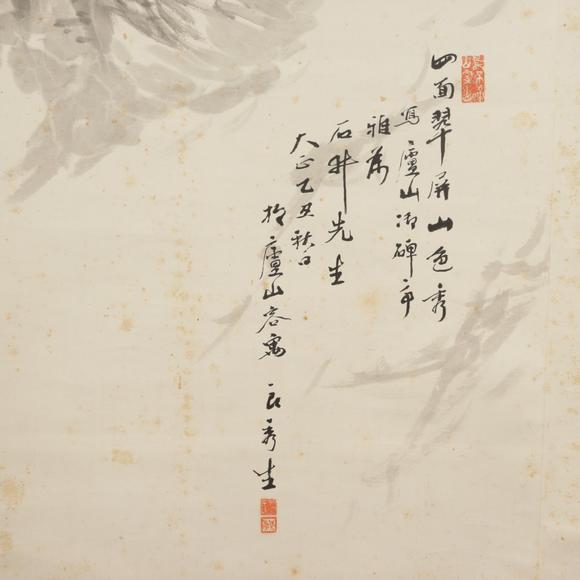 四面翠屏山色秀
写廬山御碑亭
雅属
石井先生
大正乙丑秋日
於廬山客寓 良秀生